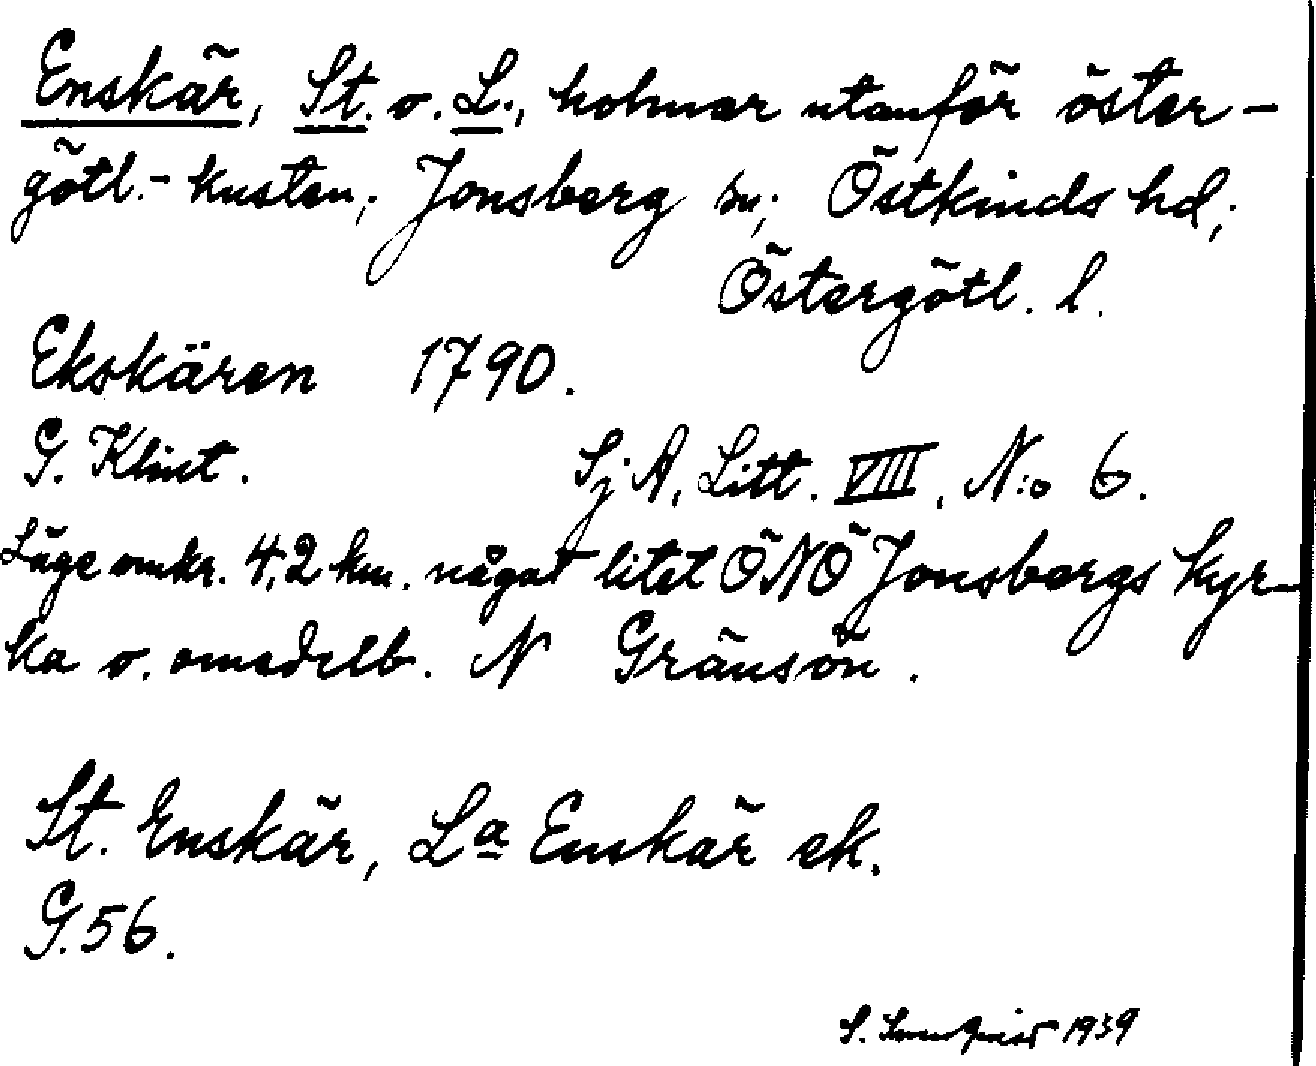 Enskär, St. o. L., holmar utanför öster-
götl.-kusten; Jonsberg sn; Östkinds hd;
Östergötl. l.
Ekskären 1790.
G. Klint. SjA, Litt. VIIII, N:o 6.
Läge omkr. 4,2 km. något litet ÖNÖ Jonsbergs kyr-
ka o. omedelb. N Gränsön.
St. Enskär, La Enskär ek.
G.56.
S. 1939